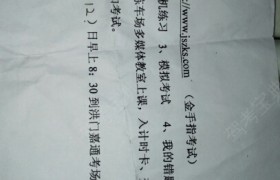 www.jszks.com
（金手指考试）
机练习 3、模拟考试 4、我的错题
东车场多媒体教室上课，入计时卡、
的考试。
12）日早上8：30到洪门嘉通考场